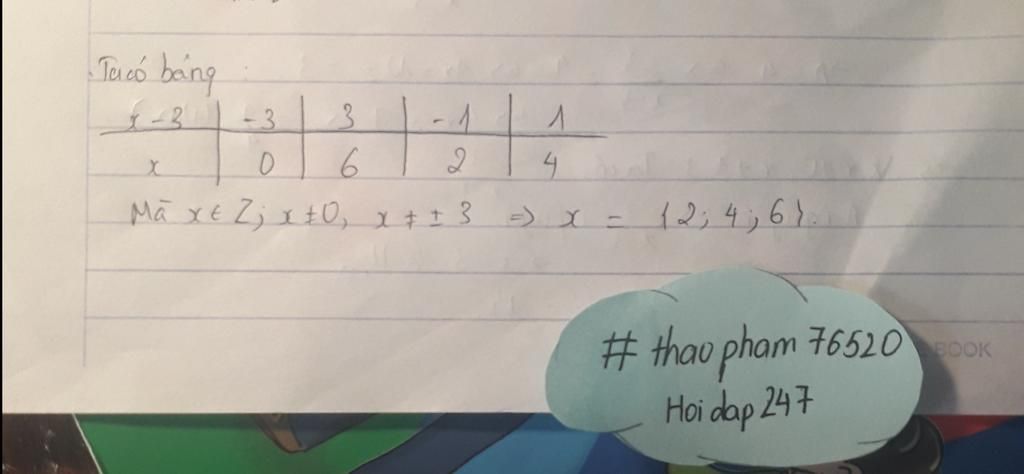 Ta có bảng :
x-3 | -3 | 3 | -1 | 1
x | 0 | 6 | 2 | 4
Mà x ∈ Z; x ≠ 0, x ≠ ± 3 => x = {2; 4; 6}.
# thao pham 76520
Hoi dap 247
BOOK